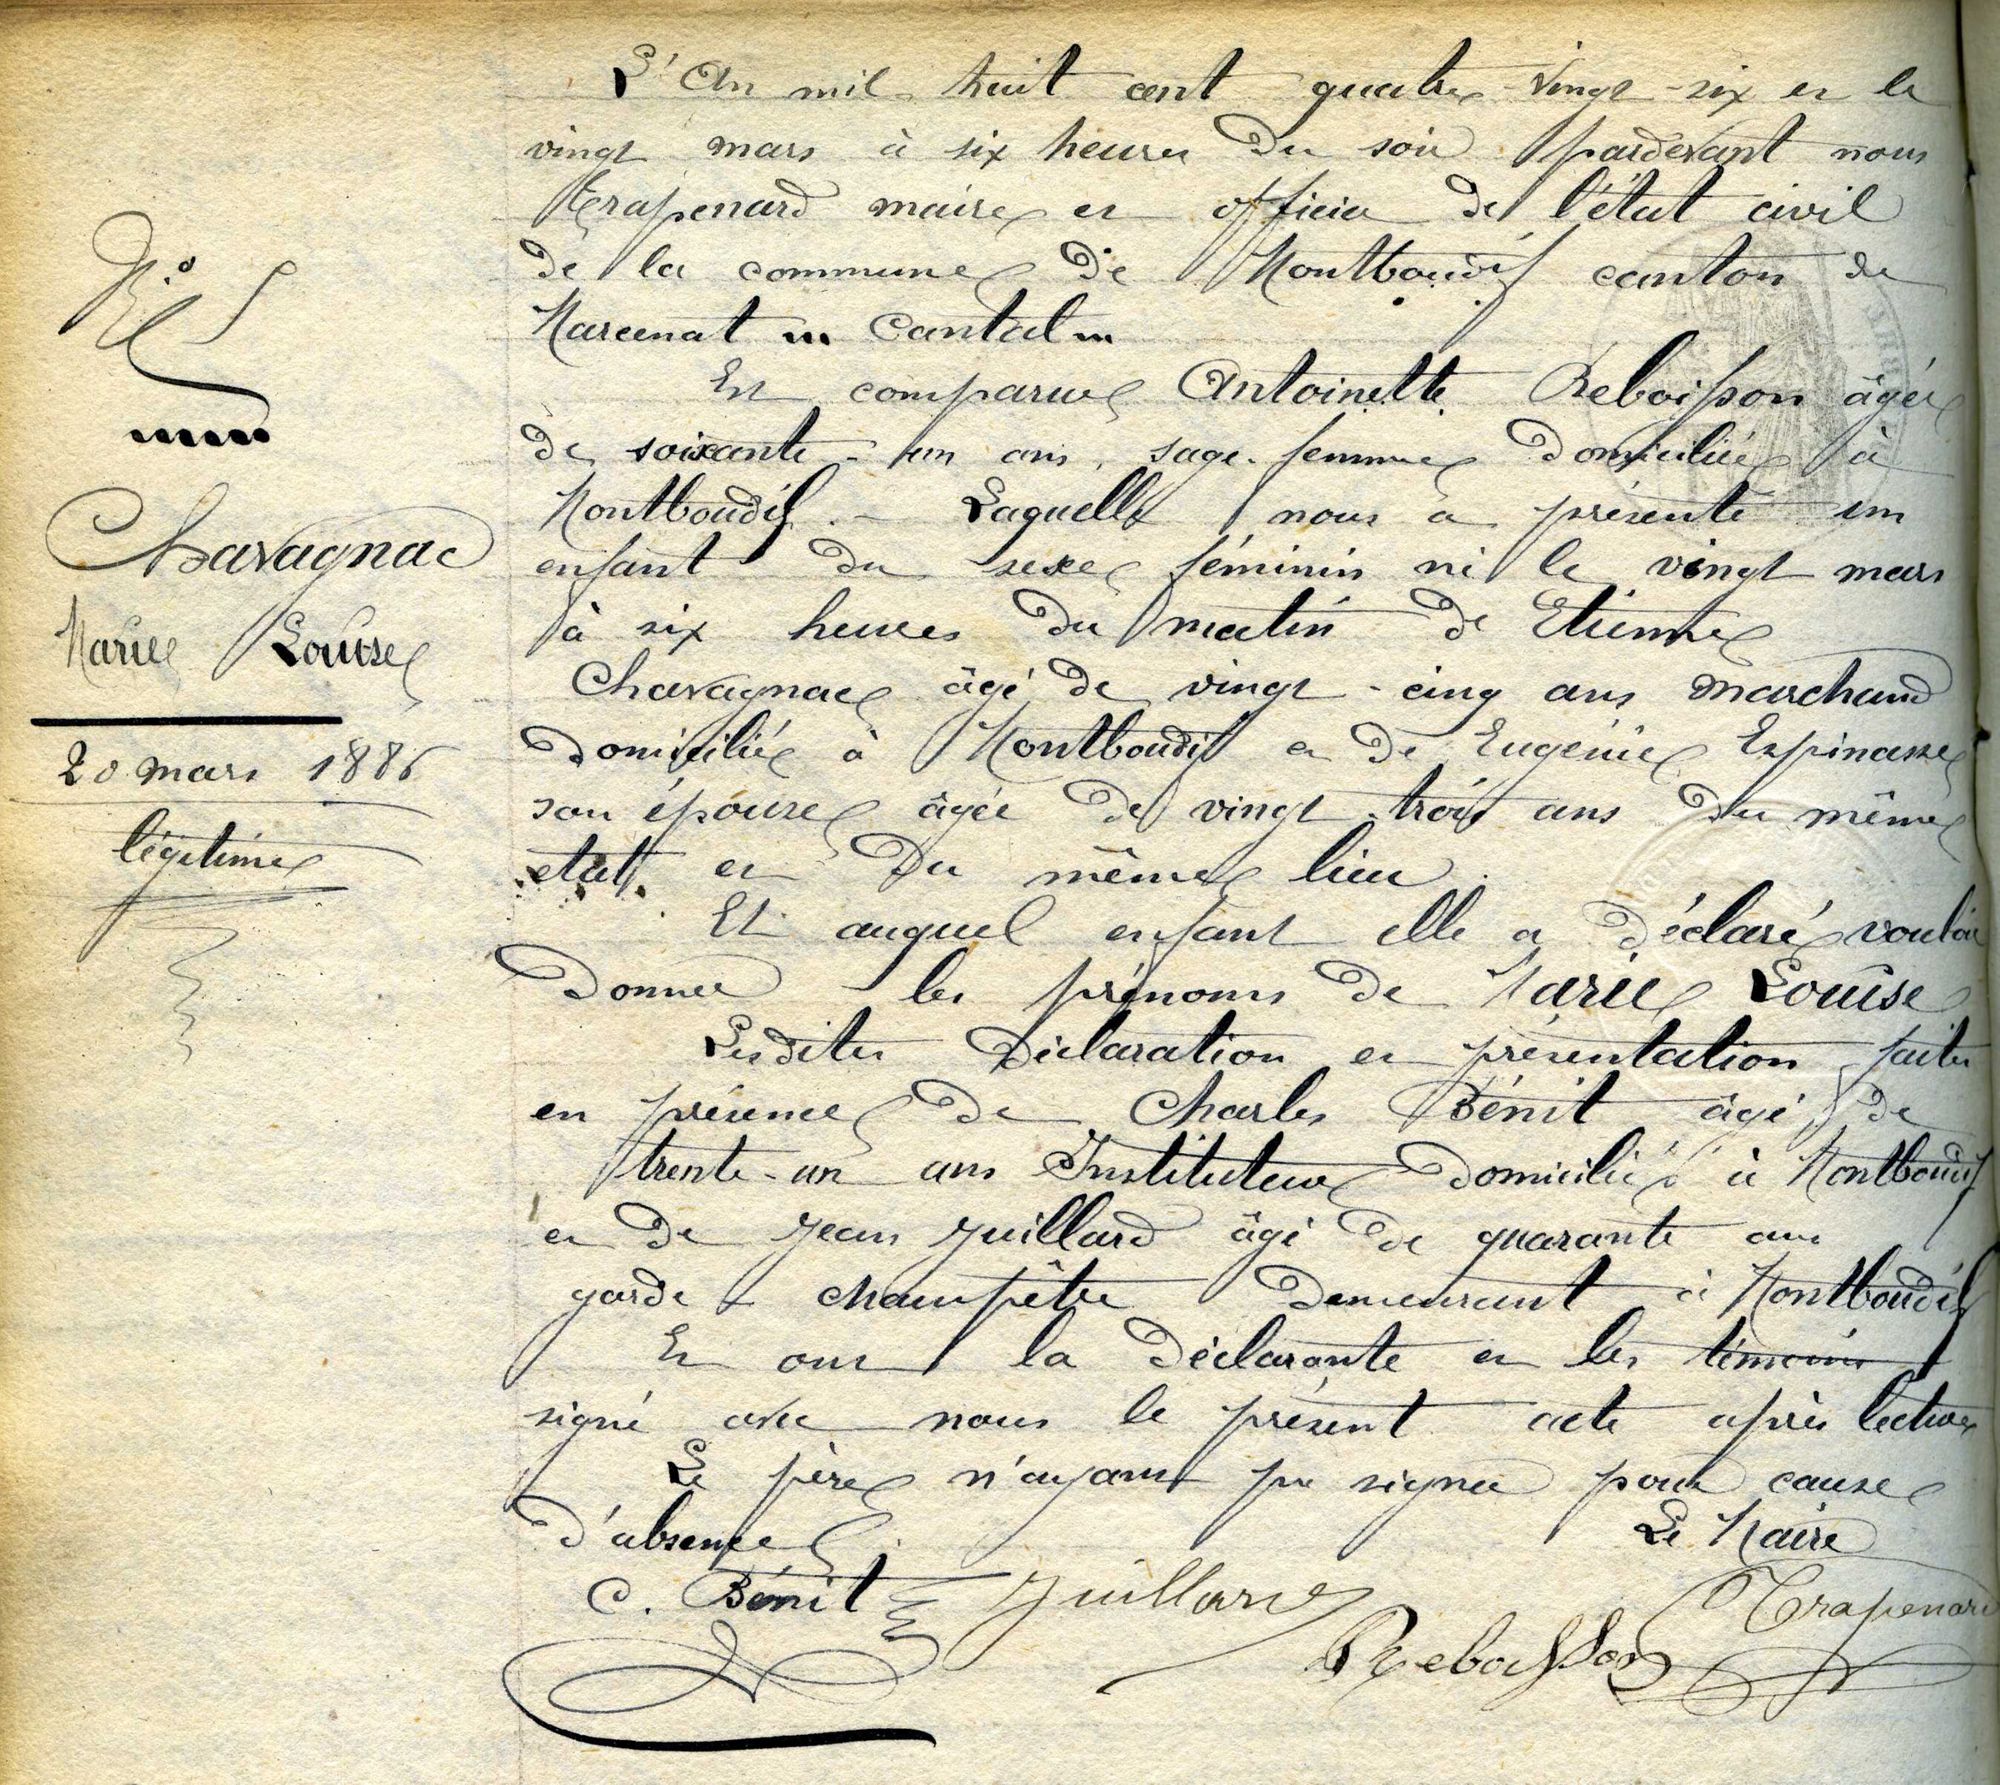 N.° 5
Chavagnac
Marie Louise
20 mars 1886
légitime
L'An mil huit cent quatre-vingt-six et le
vingt mars à six heures du soir pardevant nous
Trapenard maire et officier de l'état civil
de la commune de Montboudif canton de
Marcenat Cantal
Est comparue Antoinette Reboisson âgée
de soixante-un ans, sage-femme domiciliée à
Montboudif. - Laquelle nous a présenté un
enfant du sexe féminin né le vingt mars
à six heures du matin de Etienne
Chavagnac âgé de vingt-cinq ans marchand
domicilié à Montboudif et de Eugénie Espinasse
son épouse âgée de vingt-trois ans du même
etat et du même lieu.
Et auquel enfant elle a déclaré vouloir
donner les prénoms de Marie Louise
Lesdites déclaration et présentation faites
en présence de Charles Bénit âgé de
trente-un ans Instituteur domicilié à Montboudif
et de Jean Juillard âgé de quarante ans
garde-champêtre demeurant à Montboudif
Et ont la déclarante et les témoins
signé avec nous le présent acte après lecture
Le père n'ayant pu signer pour cause
d'absence.
Le Maire
C. Bénit Juillard Trapenard
Reboisson